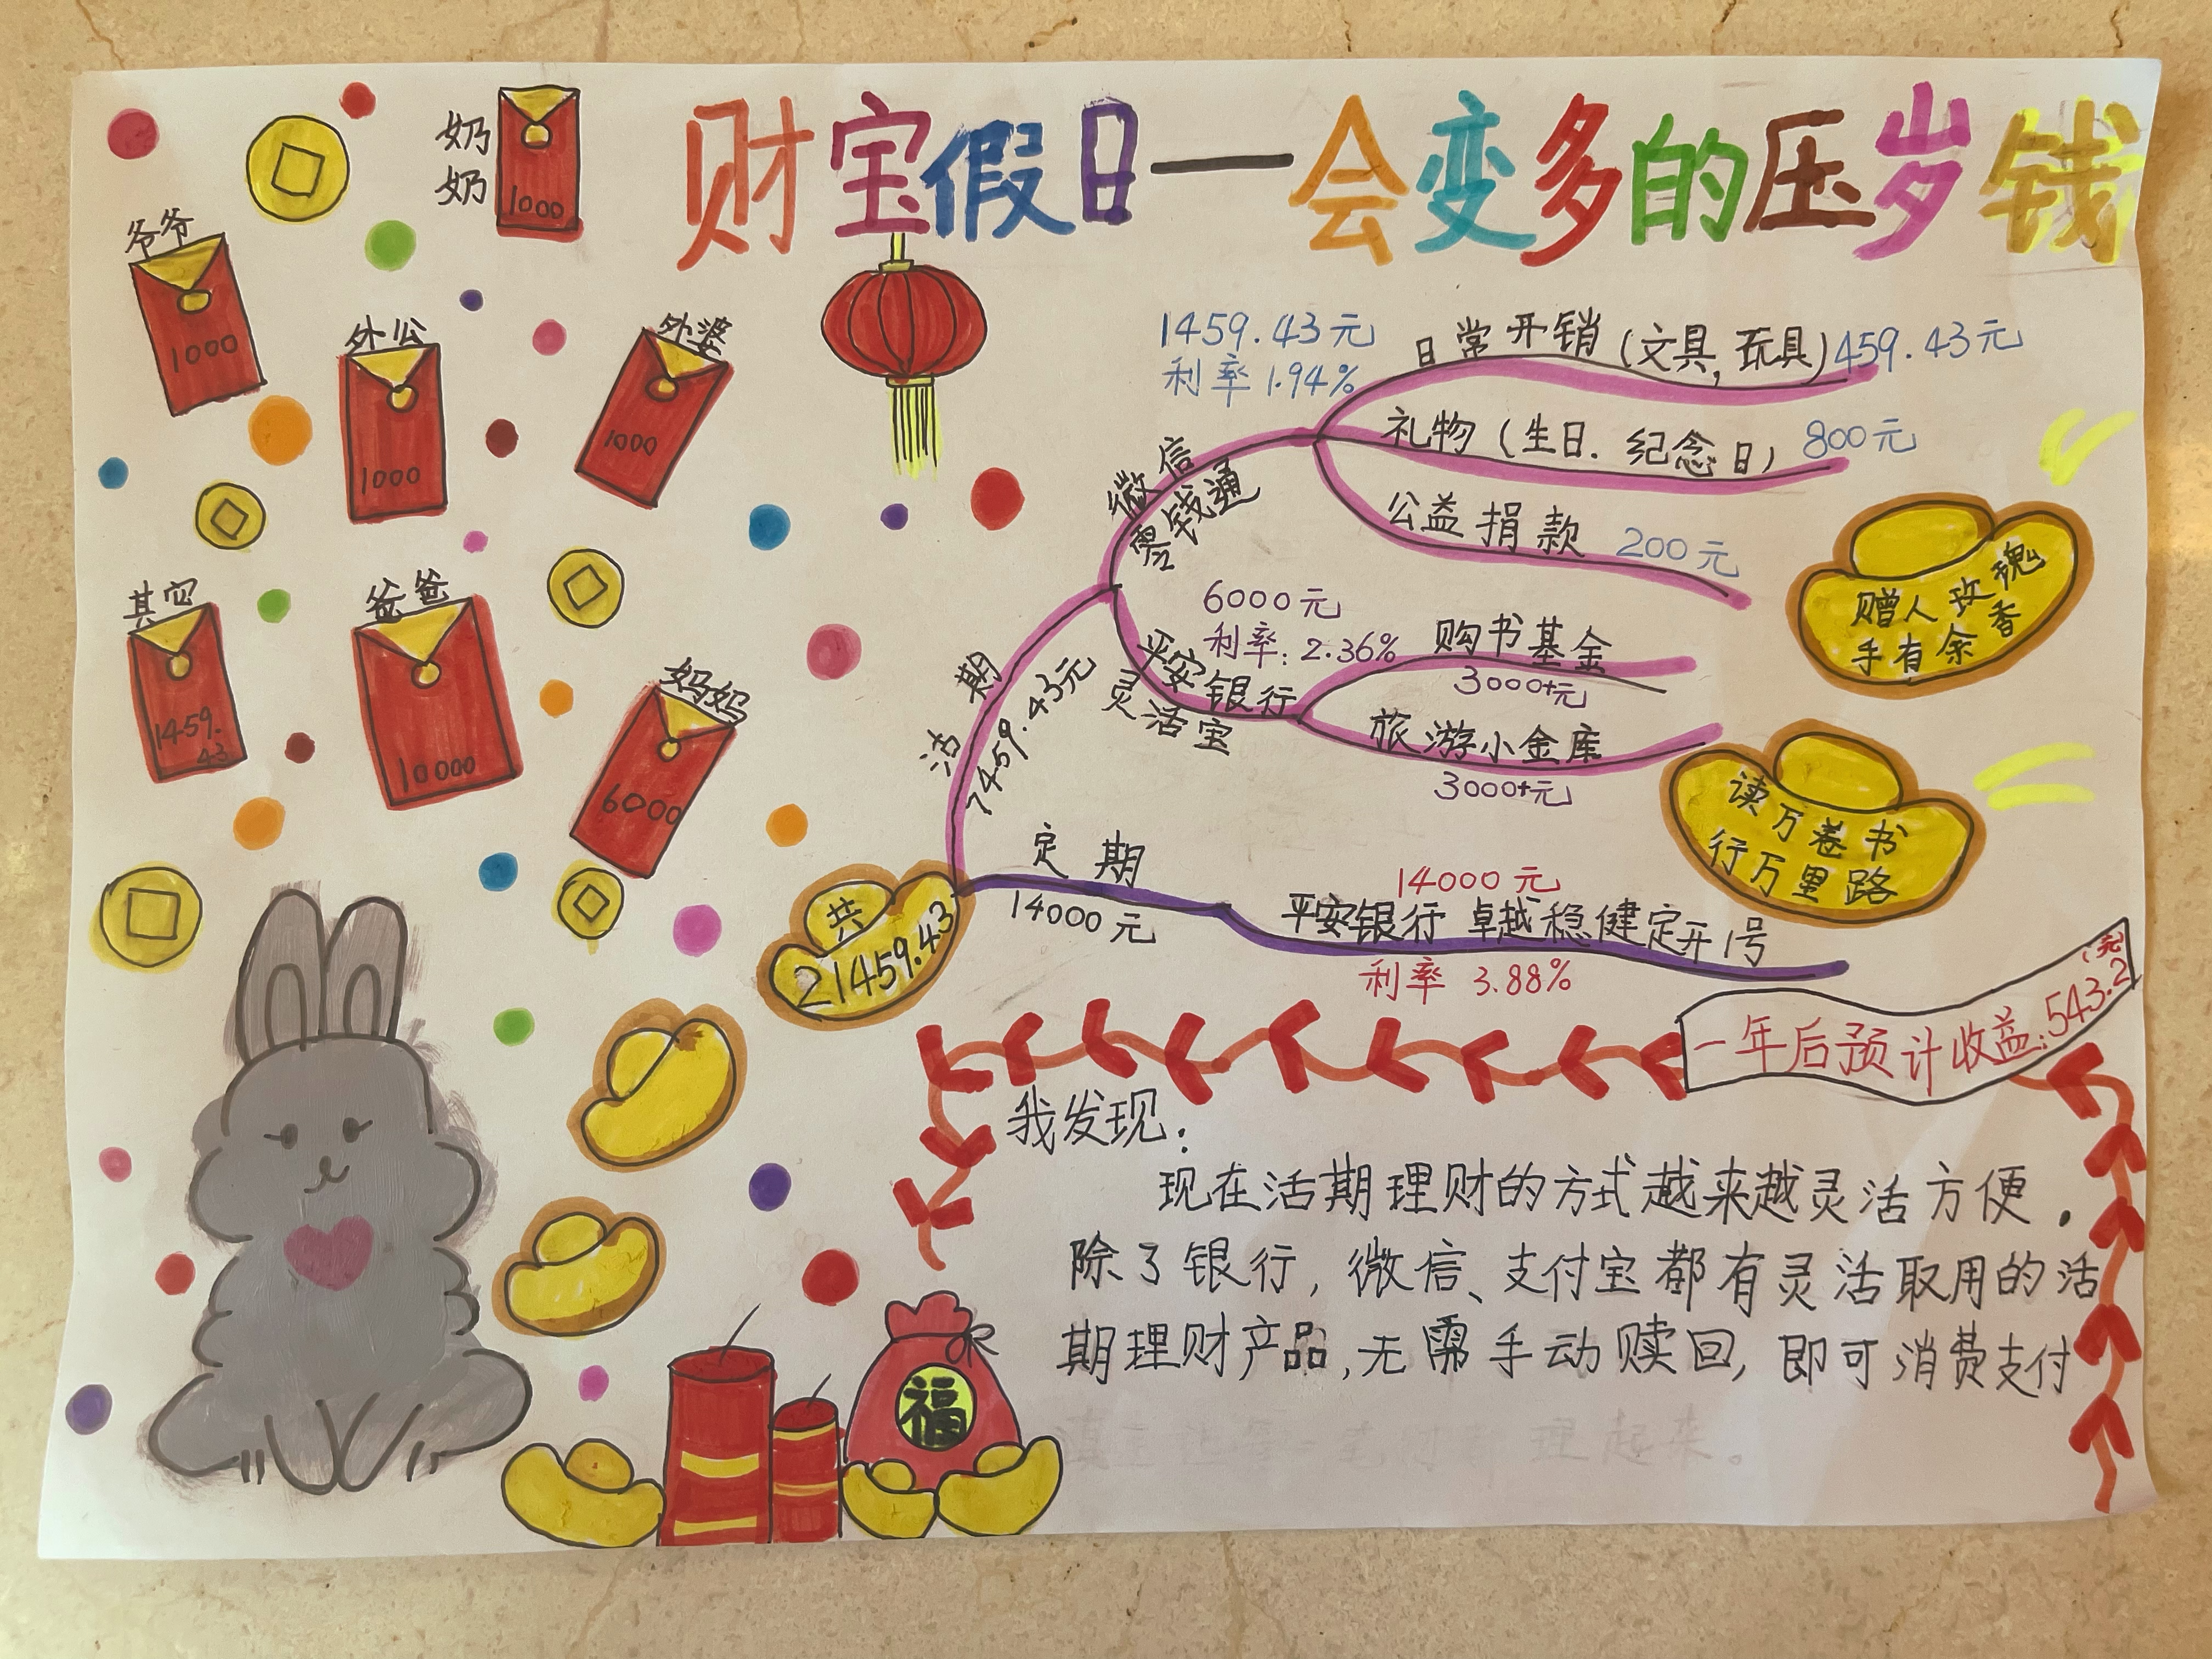 财宝假日—会变多的压岁钱
奶奶
1000
爷爷
1000
外公
1000
外婆
1000
其它
1459.
43
爸爸
10000
妈妈
6000
共
21459.43
活期
7459.43元
微信
零钱通
1459.43元
利率1.94%
日常开销(文具,玩具)459.43元
礼物(生日.纪念日)800元
公益捐款 200元
平安银行
灵活宝
6000元
利率:2.36%
购书基金
3000+元
旅游小金库
3000+元
赠人玫瑰
手有余香
读万卷书
行万里路
定期
14000元
14000元
平安银行 卓越稳健定开1号
利率 3.88%
一年后预计收益:543.2(元)
我发现:
现在活期理财的方式越来越灵活方便.
除了银行,微信、支付宝都有灵活取用的活
期理财产品,无需手动赎回,即可消费支付
福